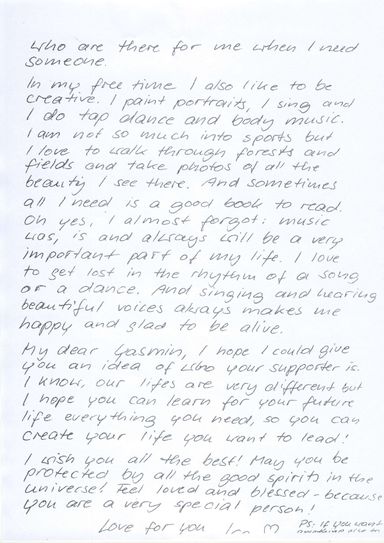 who are there for me when I need
someone.
In my free time I also like to be
creative. I paint portraits, I sing and
I do tap dance and body music.
I am not so much into sports but
I love to walk through forests and
fields and take photos of all the
beauty I see there. And sometimes
all I need is a good book to read.
Oh yes, I almost forgot: music
was, is and always will be a very
important part of my life. I love
to get lost in the rhythm of a song
or a dance. And singing and hearing
beautiful voices always makes me
happy and glad to be alive.
My dear Yasmin, I hope I could give
you an idea of who your supporter is.
I know, our lifes are very different but
I hope you can learn for your future
life everything you need, so you can
create your life you want to lead!
I wish you all the best! May you be
protected by all the good spirits in the
universe! Feel loved and blessed - because
you are a very special person!
Love for you
PS: If you want